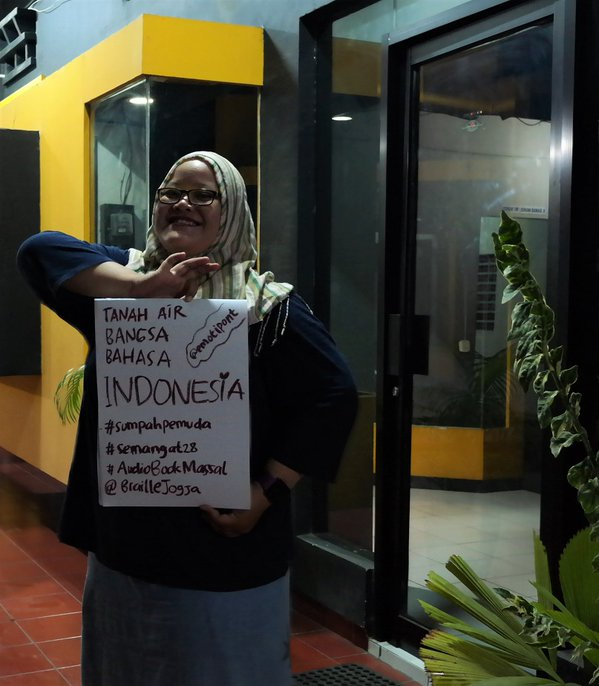 TANAH AIR
@emotipont
BANGSA
BAHASA
INDONESIA
#sumpahpemuda
#semangat28
#AudioBookMassal
@BrailleJogja